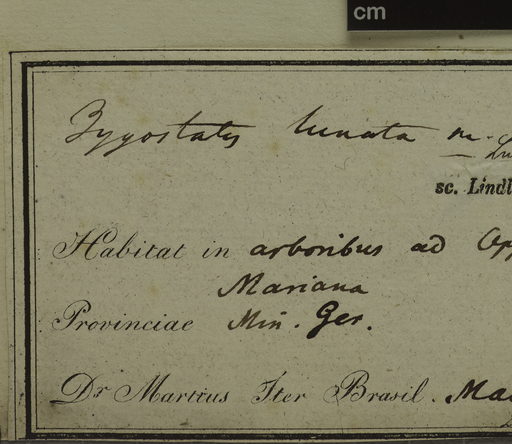 cm
Zygostates lunata m.
sc. Lindl
Habitat in arboribus ad
Mariana
Provinciae Min. Ger.
Dr Martius Iter Brasil.